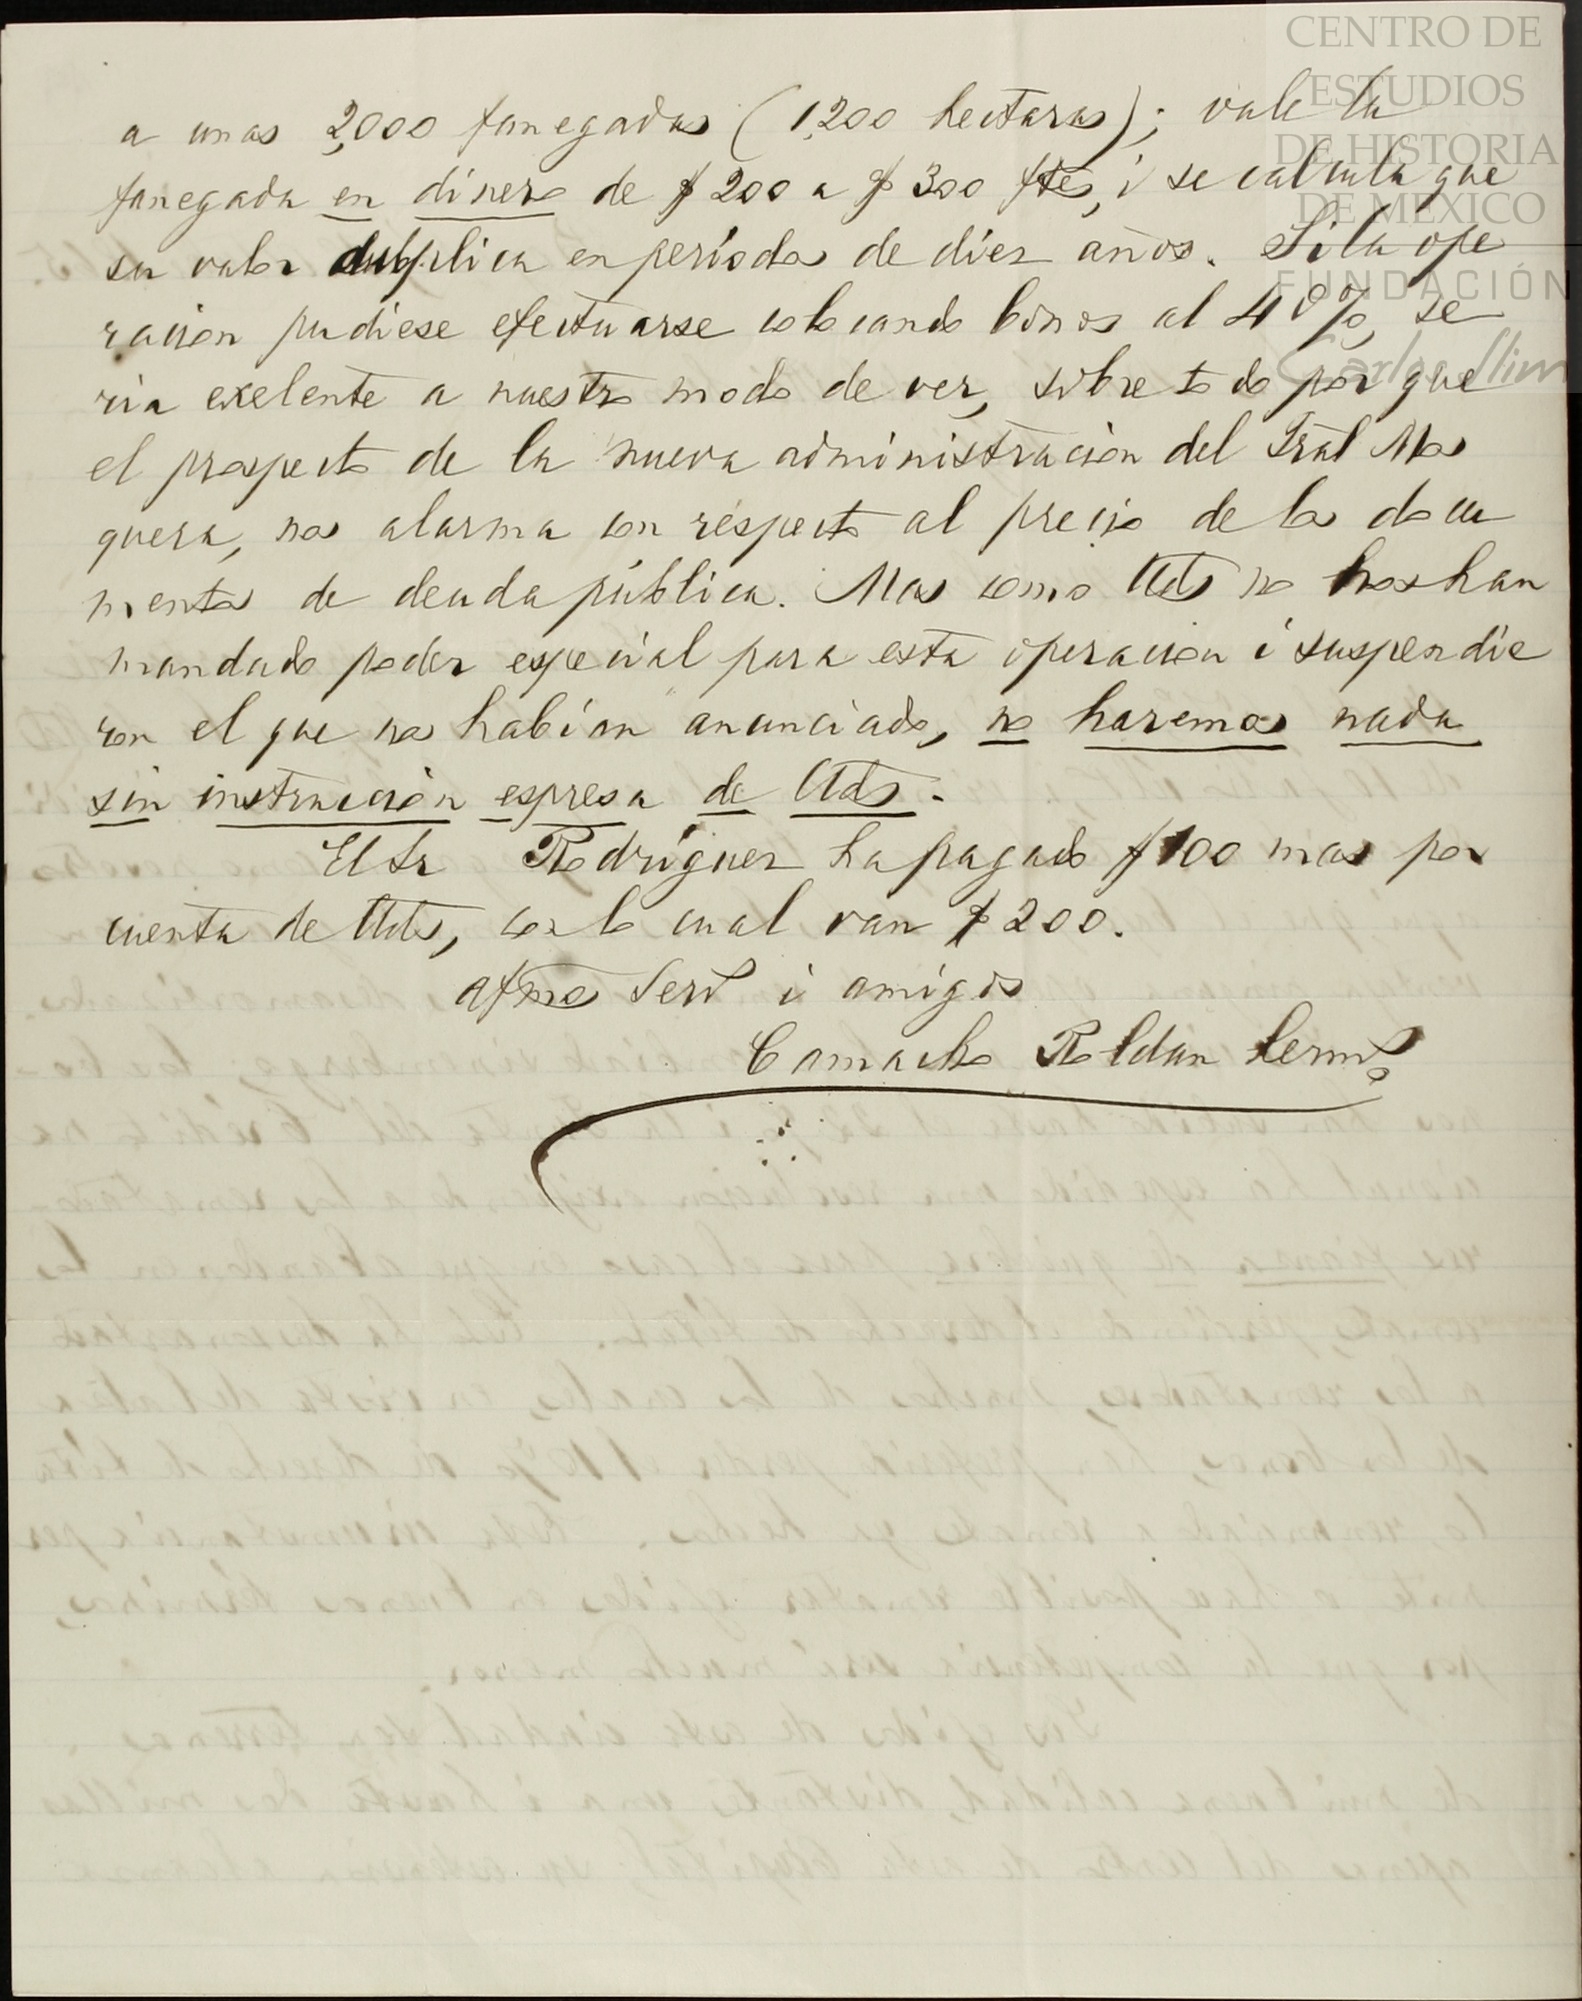 CENTRO DE
ESTUDIOS
DE HISTORIA
DE MEXICO
FUNDACIÓN
Carlos Slim
a unas 2,000 fanegadas (1,200 hectaras); vale la
fanegada en dinero de $ 200 a $ 300 ftes, i se calcula que
su valor duplica en periodos de diez años. Si la ope
racion pudiese efectuarse colocando bonos al 40%, se
ria exelente a nuestro modo de ver, sobre todo por que
el prospecto de la nueva administracion del Gral Mos
quera, nos alarma con respecto al precio de los docu
mentos de deuda pública. Mas como Uds no nos han
mandado poder especial para esta operacion i suspendie
ron el que nos habían anunciado, no haremos nada
sin instruccion espresa de Uds.
El Sr Rodríguez ha pagado $ 100 mas por
cuenta de Uds, con lo cual van $ 200.
Afmos Servs i amigos
Camacho Roldan herms